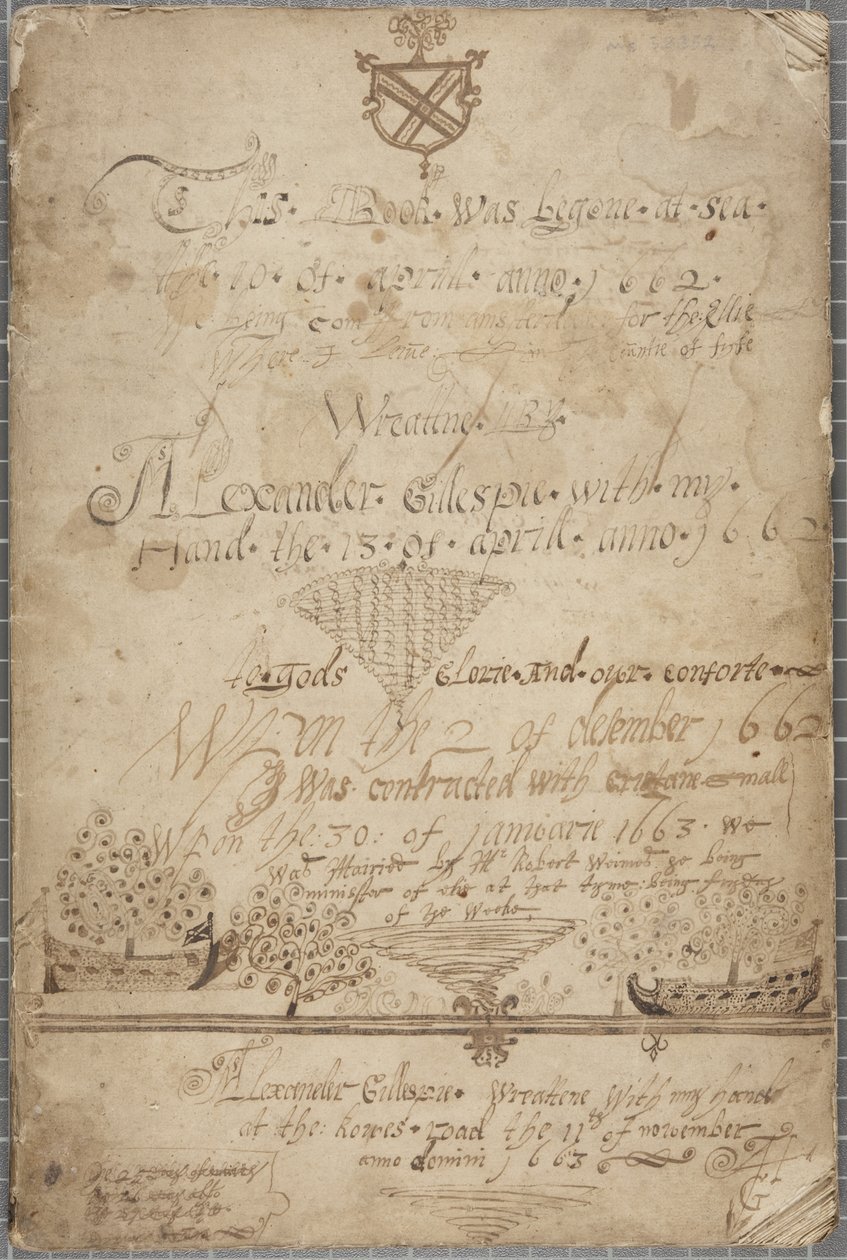 This Book was begone at sea
the 10 of aprill anno 1662
We being com from amsterdam for the Ellie
Where I in countie of fyfe
Wreattne BY
ALexander Gillespie with my
Hand the 13 of aprill anno 1662
to gods Glorie And our conforte
WPon the 2 of desember 1662
I Was contracted with small
WPon the 30 of januarie 1663 we
was Mairied by Mr Robert Weimes he being
minister of elie at that tyme being
of ye Weeke
ALexander Gillespie Wreattene With my hand
at the Kowes road the 11th of november
anno domini 1663
AG